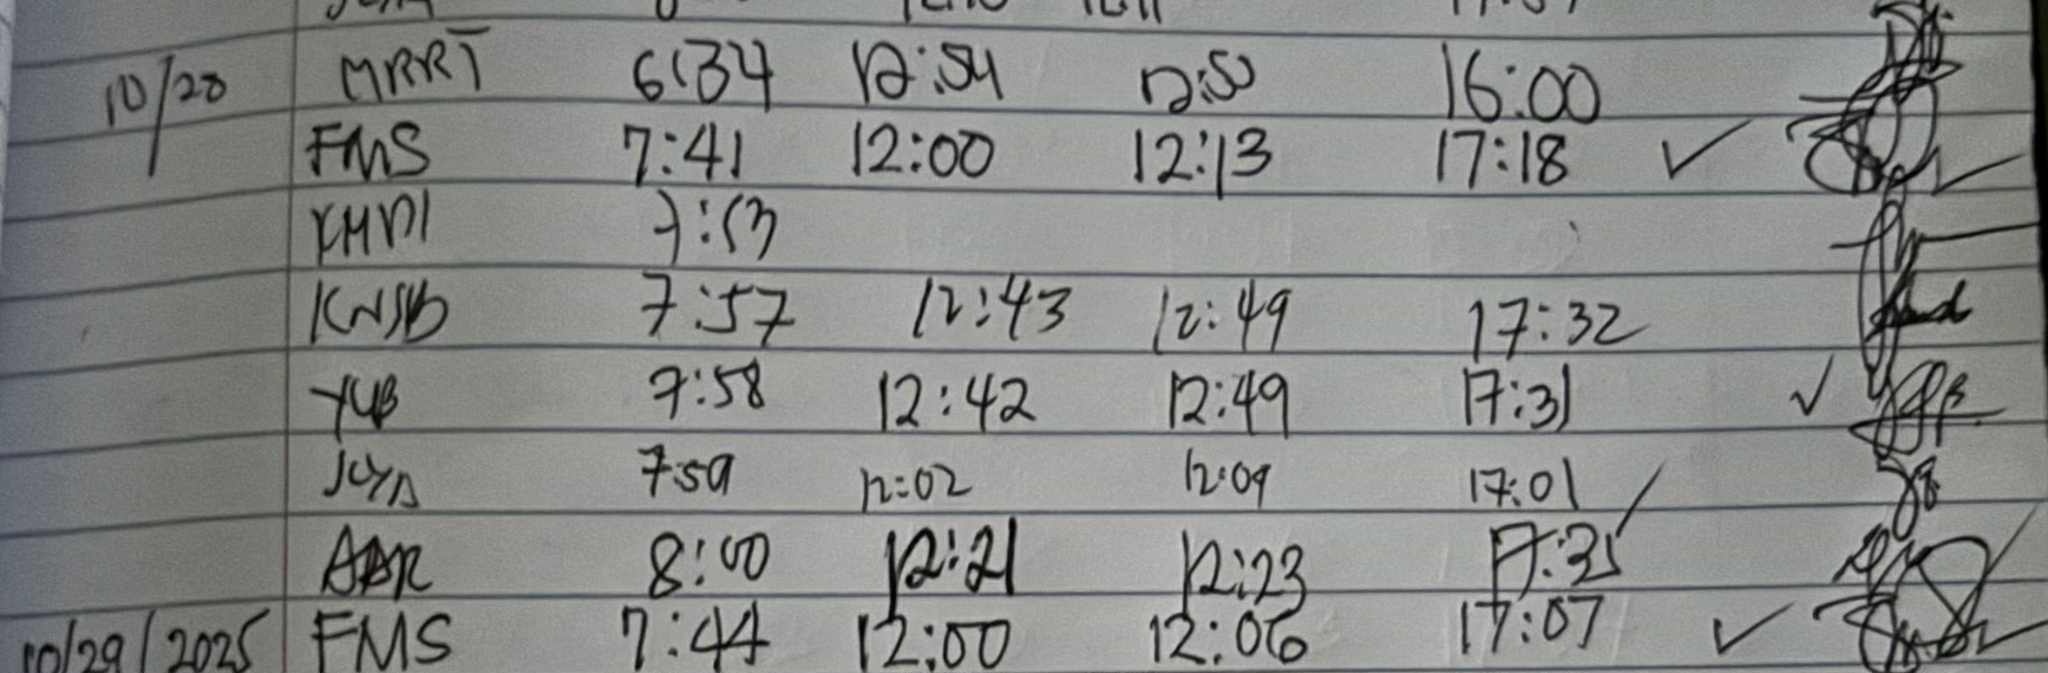 10/28 MRRT 6:34 12:54 16:00
FMS 7:41 12:00 12:13 17:18 ✓
7:53
7:57 12:43 12:49 17:32
YUB 7:58 12:42 12:49 17:31 ✓
7:59 12:02 12:09 17:01
8:00 12:21 12:23 17:35
10/29/2025 FMS 7:44 12:00 12:06 17:07 ✓